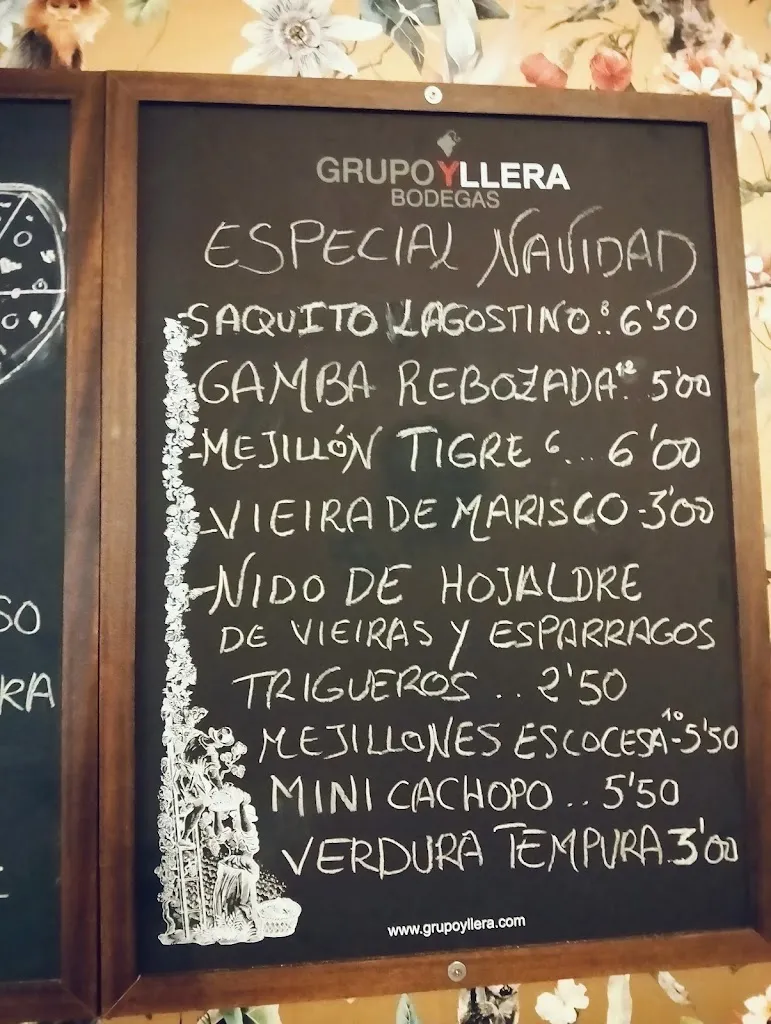 GRUPOYLLERA
BODEGAS
ESPECIAL NAVIDAD
-SAQUITO LAGOSTINO 8.. 6'50
GAMBA REBOZADA 12.. 5'00
-MEJILLÓN TIGRE 6... 6'00
-VIEIRA DE MARISCO -3'00
-NIDO DE HOJALDRE
DE VIEIRAS Y ESPARRAGOS
TRIGUEROS .. 2'50
MEJILLONES ESCOCESA 10-5'50
MINI CACHOPO .. 5'50
VERDURA TEMPURA.3'00
www.grupoyllera.com
SO
RA